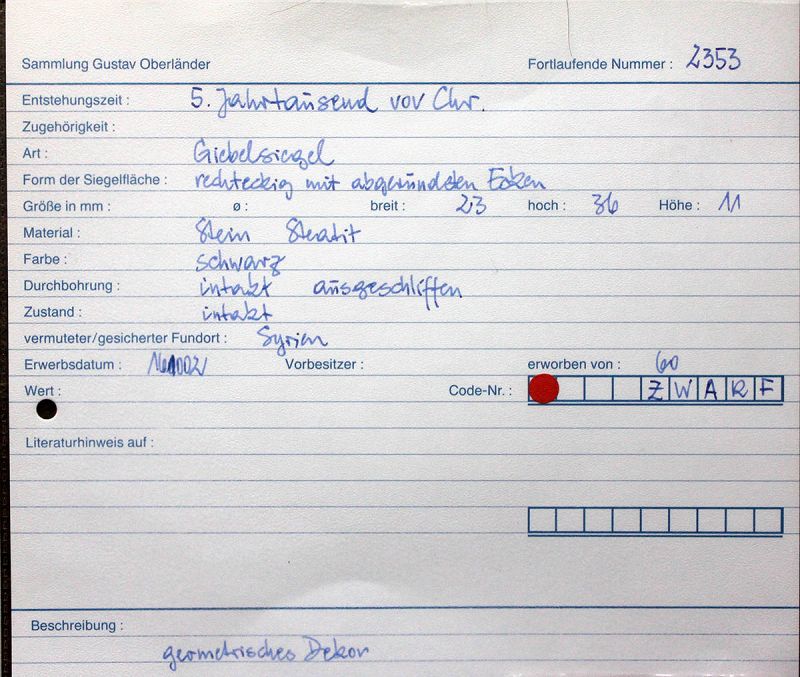 Sammlung Gustav Oberländer Fortlaufende Nummer : 2353
Entstehungszeit : 5. Jahrtausend vor Chr.
Zugehörigkeit :
Art : Giebelsiegel
Form der Siegelfläche : rechteckig mit abgerundeten Ecken
Größe in mm : ø : breit : 23 hoch : 36 Höhe : 11
Material : Stein Steatit
Farbe : schwarz
Durchbohrung : intakt ausgeschliffen
Zustand : intakt
vermuteter/gesicherter Fundort : Syrien
Erwerbsdatum : Vorbesitzer : erworben von : 60
Wert : Code-Nr. : ZWARF
Literaturhinweis auf :
Beschreibung :
geometrisches Dekor